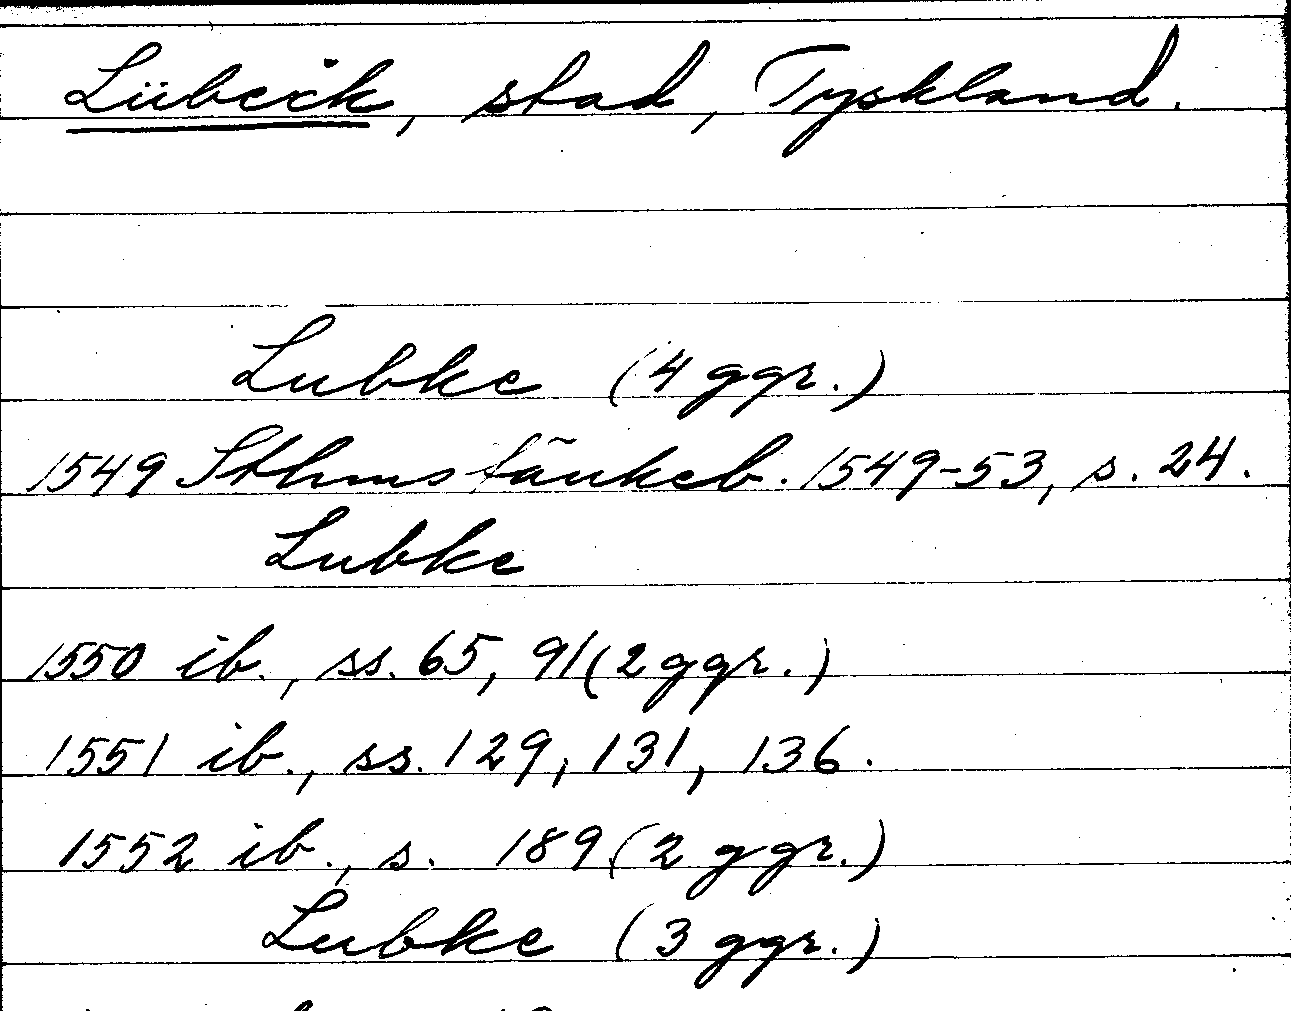 Lübeck, stad, Tyskland.
Lubke (4 ggr.)
1549 Sthms tänkeb. 1549-53, s. 24.
Lubke
1550 ib., ss. 65, 91 (2 ggr.)
1551 ib., ss. 129, 131, 136.
1552 ib., s. 189 (2 ggr.)
Lubke (3 ggr.)